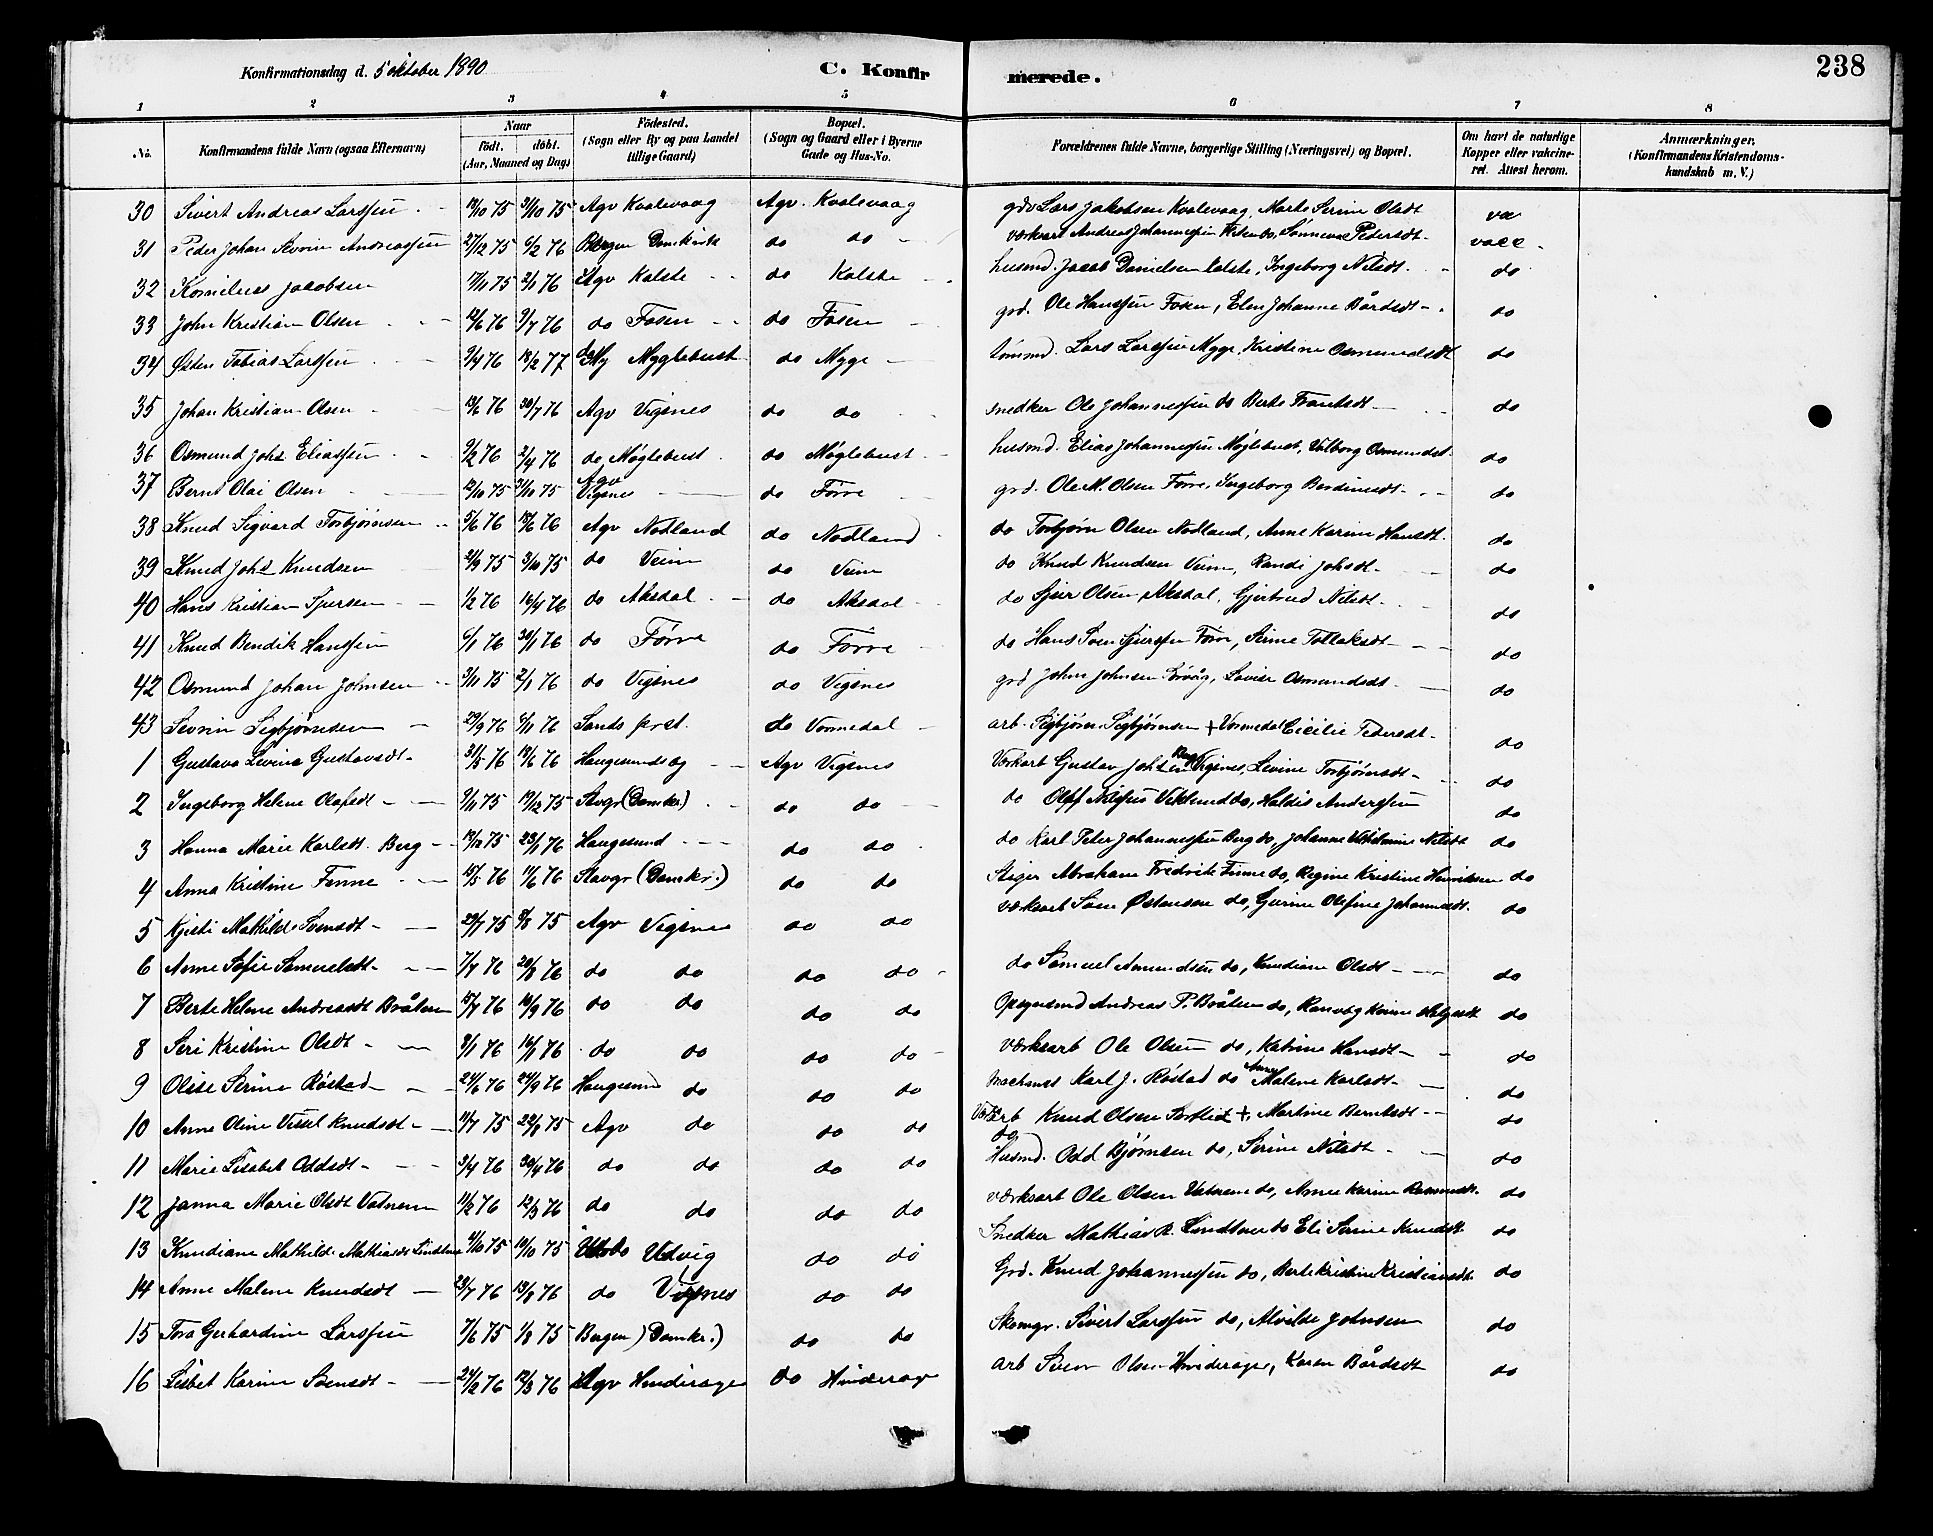 Konfirmationsdag d. 5 oktober 1890 C. Konfirmerede. 238
1 2 3 4 5 6 7 8
No. Konfirmandens fulde Navn (ogsaa Efternavn) Naar födt. döbt. (Aar, Maaned og Dag) Födested. (Sogn eller By og paa Landet tillige Gaard) Bopæl. (Sogn og Gaard eller i Byerne Gade og Hus-No. Forældrenes fulde Navne, borgerlige Stilling (Næringsvei) og Bopæl. Om havt de naturlige Kopper eller vakcineret. Attest herom. Anmærkninger. (Konfirmandens Kristendomskundskab m. V.)
30 Sivert Andreas Larssen 31/10 75 Agv Kvalevaag Agv. Kvalevaag Lars Jakobsen Kvalevaag, Marte Serine Olsdt
31 Peder Johan Andreassen 27/12 75 6/2 76 Bergen Domkirke do do Andreas Johannessen do, Pedersdt vacc
32 Kornelius Jacobsen 17/11 75 2/1 76 Agv Kalstø do Kalstø husmd. Jacob Danielsen Kalstø, Ingeborg Nilsdt. do
33 John Kristian Olsen 12/6 76 9/7 76 do Fosen do Fosen grd. Ole Hanssen Fosen, Elen Johanne Bårdsdt do
34 Østen Tobias Larssen 9/4 76 18/2 77 Myklebust do Myge tømmd. Lars Larssen Myge, Kristine Osmundsdt do
35 Johan Kristian Olsen 13/6 76 30/7 76 Agv Vigsnes do do snedker Ole Johannessen do Berte Frantsdt do
36 Osmund Johs Eliassen 9/2 76 2/4 76 do Møglebust do Møglebust husmd. Elias Johannessen Møglebust, Valborg Osmundsdt do
37 Bernt Olai Olsen 12/10 75 31/10 75 Agv Vigsnes do Førre grd. Ole M. Olsen Førre, Ingeborg do
38 Knud Sigvard Torbjørnsen 5/6 76 18/6 76 Agv Nodland do Nodland do Torbjørn Olsen Nodland, Anne Karine Hansdt. do
39 Knud Johs Knudsen 75 3/10 75 do Veim do Veim do Knud Knudsen Veim, Randi Johsdt do
40 Hans Kristian Sjursen 1/2 76 16/4 76 do Aksdal do Aksdal do Sjur Olsen Aksdal, Gjertrud Nilsdt do
41 Knud Bendik Hanssen 6/1 76 30/1 76 do Førre do Førre do Hans Førre, Serine Tollaksdt do
42 Osmund Johan Johnsen 3/11 75 2/1 76 do Vigsnes do Vigsnes grd John Johnsen, Lovise Osmundsdt do
43 Sevrin Sigbjørnsen 29/9 76 76 Sands prst. do Vormedal arb. Sigbjørn Sigbjørnsen + Vormedal Cicilie Pedersdt do
1 Gustava Levina Gustavsdt 31/5 76 18/6 76 Haugesund Agv Vigsnes Værkarb Gustav Vigsnes, Levine Torbjørnsdt do
2 Ingeborg Helene Olafsdt 9/11 75 19/12 75 Stavgr (Domkr.) do do do Nilssen do, Haldis Anderssen do
3 Hanna Marie Karlsdt Berg 75 23/1 76 Haugesund do do do Karl Peter Johannessen Berg do, Johanne Nilsdt do
4 Anna Kristine Finne 18/5 76 11/6 76 Stavgr (Domkr.) do do Stiger Abraham Fredrik Finne do, Regine Kristine Henriksen do
5 Kjisti Mathilde Svensdt 29/7 75 75 Agv Vigsnes do do værksarb Sven Østensen do, Gurine Olefine Johannesdt. do
6 Anne Sofie Samuelsdt 7/7 76 20/8 76 do do do do do Samuel Amundsen do, Knudiane Olsdt do
7 Berte Helene Andreasdt Bråten 15/7 76 10/9 76 do do do do Opsynsmd Andreas P. Bråten do, do
8 Siri Kristine Olsdt 3/1 76 16/1 76 do do do do værksarb Ole Olsen do, Katrine Hansdt do
9 Olise Serine Røstad 24/6 76 24/9 76 Haugesund do do do Karl J. Røstad do Anne Malene Karlsdt do
10 Anne Oline Knudsdt 11/7 75 22/8 75 Agv do do do Værkarb Knud Olsen +, Martine Berntsdt do
11 Marie Lisabet Oddsdt 3/4 76 30/4 76 do do do do Husmd. Odd Bjørnsen do, Serine Nilsdt do
12 Janna Marie Olsdt Vatnem 11/2 76 12/3 76 do do do do værksarb Ole Olsen Vatnem do, Anne Karine do
13 Knudiane Mathilde Mathiasdt 75 75 Utvig do do Snedker Mathias R. do Eli Serine Knudsdt do
14 Anne Malene Knudsdt 23/7 76 13/8 76 do Vigsnes do do Grd. Knud Johannessen do, Berte Kristine Kristiansdt. do
15 Tora Gerhardine Larssen 7/6 75 1/8 75 Bergen (Domkr.) do do Skomgr. Sivert Larssen do, Alvilde Johnsen do
16 Lisbet Karine Svensdt 24/2 76 12/3 76 Agv Hinderage do Hinderage arb Sven Olsen Hinderage, Karen Bårdsdt do